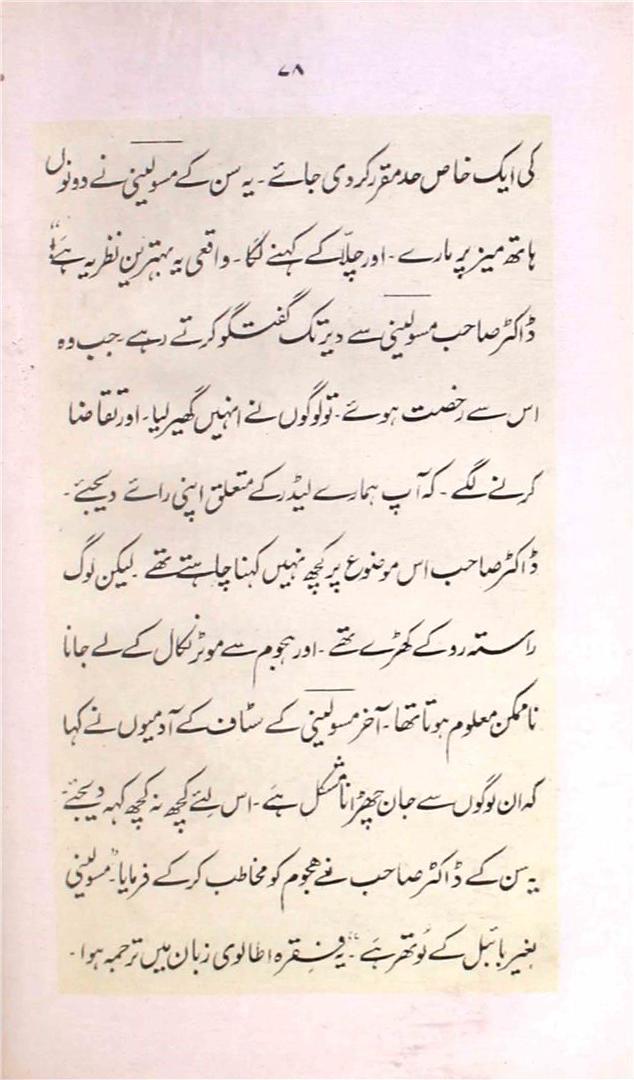 ۷۸
کی ایک خاص حد مقرر کر دی جائے۔ یہ سن کے مسولینی نے دونوں
ہاتھ میز پر مارے۔ اور چلّا کے کہنے لگا۔ واقعی یہ بہترین نظریہ ہے!“
ڈاکٹر صاحب مسولینی سے دیر تک گفتگو کرتے رہے۔ جب وہ
اس سے رخصت ہوئے۔ تو لوگوں نے انہیں گھیر لیا۔ اور تقاضا
کرنے لگے۔ کہ آپ ہمارے لیڈر کے متعلق اپنی رائے دیجئے۔
ڈاکٹر صاحب اس موضوع پر کچھ نہیں کہنا چاہتے تھے۔ لیکن لوگ
راستہ روکے کھڑے تھے۔ اور ہجوم سے موٹر نکال کے لے جانا
ناممکن معلوم ہوتا تھا۔ آخر مسولینی کے سٹاف کے آدمیوں نے کہا
کہ ان لوگوں سے جان چھڑانا مشکل ہے۔ اس لئے کچھ نہ کچھ کہہ دیجئے۔
یہ سن کے ڈاکٹر صاحب نے ہجوم کو مخاطب کر کے فرمایا۔ ”مسولینی
بغیر بائبل کے لُوتھر ہے“۔ یہ فقرہ اطالوی زبان میں ترجمہ ہوا۔